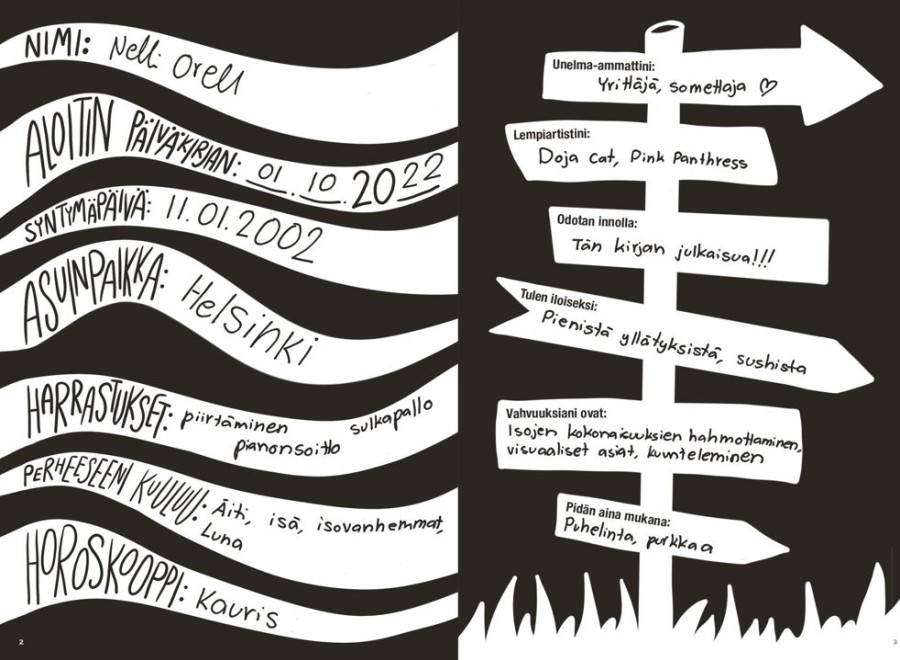 NIMI: Nelli Orell
ALOITIN PÄIVÄKIRJAN: 01.10.2022
SYNTYMÄPÄIVÄ: 11.01.2002
ASUINPAIKKA: Helsinki
HARRASTUKSET: piirtäminen sulkapallo
pianonsoitto
PERHEESEENI KUULUU: Äiti, isä, isovanhemmat,
Luna
HOROSKOOPPI: Kauris
2
Unelma-ammattini:
Yrittäjä, somettaja ♡
Lempiartistini:
Doja cat, Pink Panthress
Odotan innolla:
Tän kirjan julkaisua!!!
Tulen iloiseksi:
Pienistä yllätyksistä, sushista
Vahvuuksiani ovat:
Isojen kokonaisuuksien hahmottaminen,
visuaaliset asiat, kuunteleminen
Pidän aina mukana:
Puhelinta, purkkaa
3